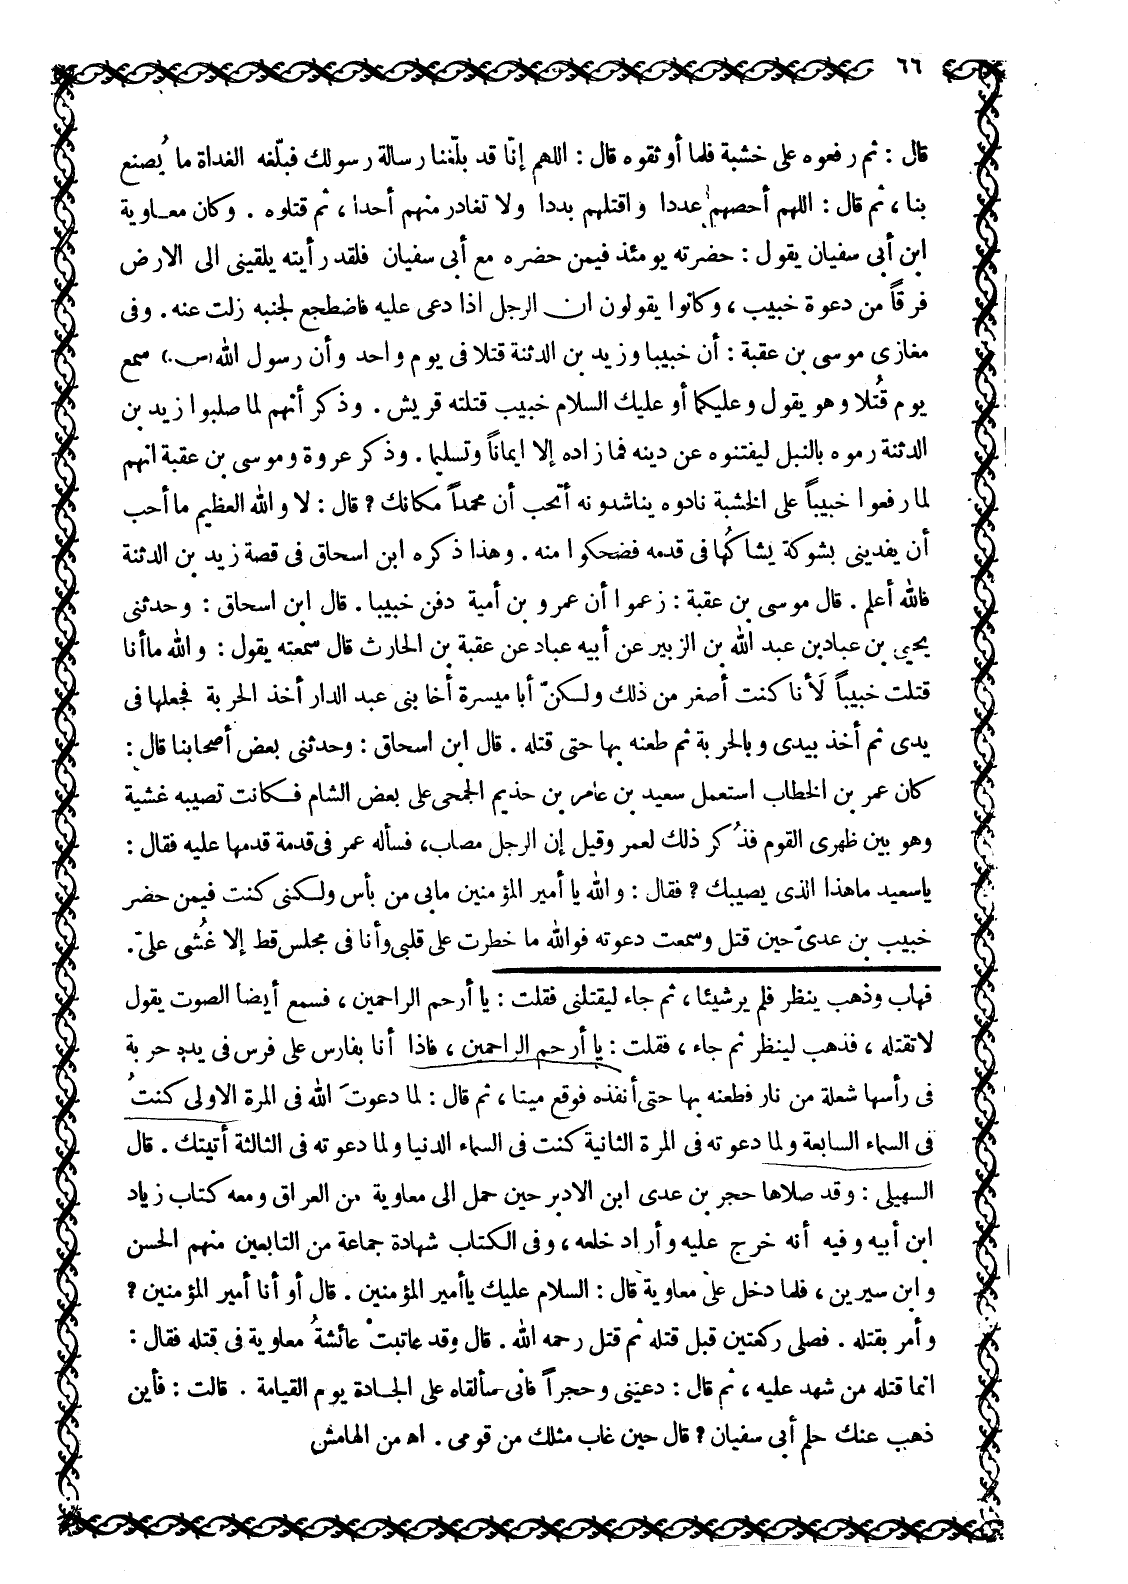 ٦٦
قال : ثم رفعوه على خشبة فلما أوثقوه قال : اللهم إنّا قد بلّغنا رسالة رسولك فبلّغه الغداة ما يُصنع
بنا ، ثم قال : اللهم أحصهم عددا واقتلهم بددا ولا تغادر منهم أحدا ، ثم قتلوه . وكان معاوية
ابن أبى سفيان يقول : حضرته يومئذ فيمن حضره مع أبى سفيان فلقد رأيته يلقينى الى الارض
فرقاً من دعوة خبيب ، وكانوا يقولون ان الرجل اذا دعى عليه فاضطجع لجنبه زلت عنه . وفى
مغازى موسى بن عقبة : أن خبيبا وزيد بن الدثنة قتلا فى يوم واحد وأن رسول الله (ص.) سمع
يوم قُتلا وهو يقول وعليكما أو عليك السلام خبيب قتلته قريش . وذكر أنهم لما صلبوا زيد بن
الدثنة رموه بالنبل ليفتنوه عن دينه فما زاده إلا ايماناً وتسليما . وذكر عروة وموسى بن عقبة انهم
لما رفعوا خبيباً على الخشبة نادوه يناشدونه أتحب أن محمداً مكانك ? قال : لا والله العظيم ما أحب
أن يفدينى بشوكة يشاكُها فى قدمه فضحكوا منه . وهذا ذكره ابن اسحاق فى قصة زيد بن الدثنة
فالله أعلم . قال موسى بن عقبة : زعموا أن عمرو بن أمية دفن خبيبا . قال ابن اسحاق : وحدثنى
يحيى بن عباد بن عبد الله بن الزبير عن أبيه عباد عن عقبة بن الحارث قال سمعته يقول : والله ما أنا
قتلت خبيباً لَأنا كنت أصغر من ذلك ولكنّ أبا ميسرة أخا بنى عبد الدار أخذ الحربة فجعلها فى
يدى ثم أخذ بيدى وبالحربة ثم طعنه بها حتى قتله . قال ابن اسحاق : وحدثنى بعض أصحابنا قال :
كان عمر بن الخطاب استعمل سعيد بن عامر بن حذيم الجمحى على بعض الشام فكانت تصيبه غشية
وهو بين ظهرى القوم فذُكر ذلك لعمر وقيل إن الرجل مصاب، فسأله عمر فى قدمة قدمها عليه فقال :
ياسعيد ماهذا الذى يصيبك ? فقال : والله يا أمير المؤمنين مابى من بأس ولكنى كنت فيمن حضر
خبيب بن عدىّ حين قتل وسمعت دعوته فوالله ما خطرت على قلبى وأنا فى مجلس قط إلا غُشى علىّ.
فهاب وذهب ينظر فلم ير شيئا ، ثم جاء ليقتلنى فقلت : يا أرحم الراحمين ، فسمع أيضا الصوت يقول
لاتقتله ، فذهب لينظر ثم جاء ، فقلت : يا أرحم الراحمين ، فاذا أنا بفارس على فرس فى يده حربة
فى رأسها شعلة من نار فطعنه بها حتى أنفذه فوقع ميتا ، ثم قال : لما دعوتَ الله فى المرة الاولى كنتُ
فى السماء السابعة ولما دعوته فى المرة الثانية كنت فى السماء الدنيا ولما دعوته فى الثالثة أتيتك . قال
السهيلى : وقد صلاها حجر بن عدى ابن الادبر حين حمل الى معاوية من العراق ومعه كتاب زياد
ابن أبيه وفيه أنه خرج عليه وأراد خلعه ، وفى الكتاب شهادة جماعة من التابعين منهم الحسن
وابن سيرين ، فلما دخل على معاوية قال : السلام عليك ياأمير المؤمنين . قال أو أنا أمير المؤمنين ?
وأمر بقتله . فصلى ركعتين قبل قتله ثم قتل رحمه الله . قال وقد عاتبتْ عائشةُ معاوية فى قتله فقال :
انما قتله من شهد عليه ، ثم قال : دعينى وحجراً فانى سألقاه على الجادة يوم القيامة . قالت : فأين
ذهب عنك حلم أبى سفيان ? قال حين غاب مثلك من قومى . اه من الهامش